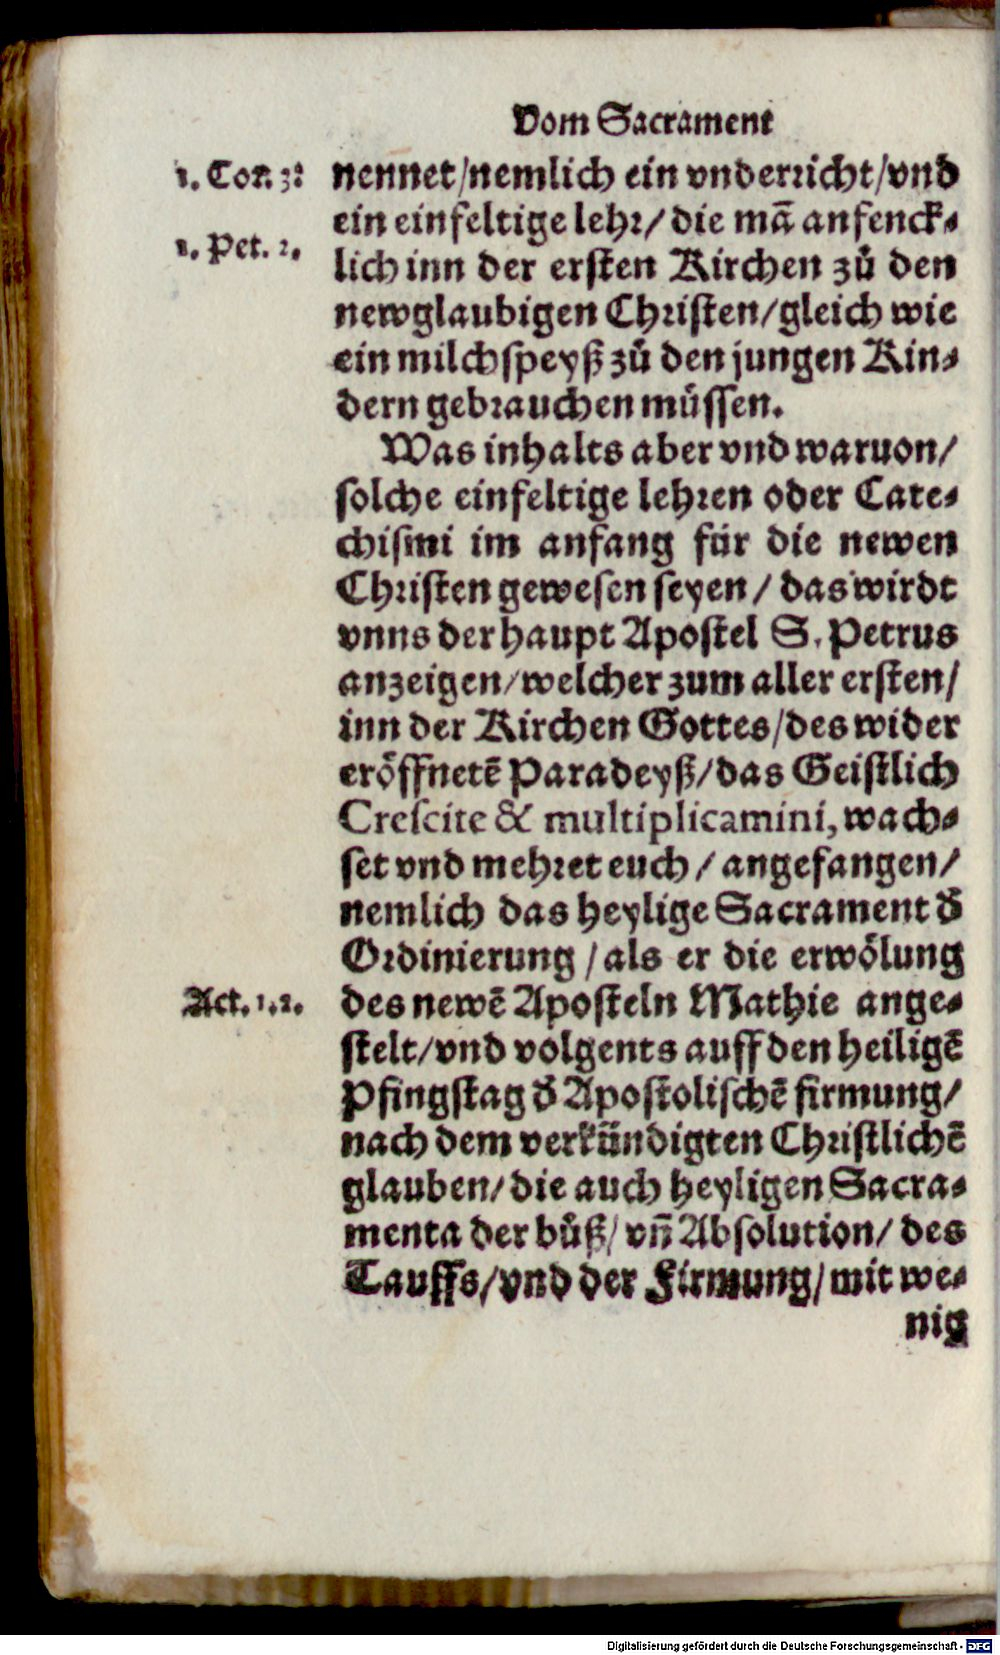 Vom Sacrament
1. Cor. 3.
nennet/nemlich ein vnderricht/vnd
ein einfeltige lehr/ die mã anfenck-
1. Pet. 2.
lich inn der ersten Kirchen zů den
newglaubigen Christen/gleich wie
ein milchspeyß zů den jungen Kin-
dern gebrauchen müssen.
Was inhalts aber vnd waruon/
solche einfeltige lehren oder Cate-
chismi im anfang für die newen
Christen gewesen seyen/ das wirdt
vnns der haupt Apostel S. Petrus
anzeigen/welcher zum aller ersten/
inn der Kirchen Gottes/des wider
eröffnetẽ Paradeyß/das Geistlich
Crescite & multiplicamini, wach-
set vnd mehret euch/ angefangen/
nemlich das heylige Sacrament d̕
Ordinierung/als er die erwölung
Act. 1.2.
des newẽ Aposteln Mathie ange-
stelt/vnd volgents auff den heiligẽ
Pfingstag d̕ Apostolischẽ firmung/
nach dem verkündigten Christlichẽ
glauben/die auch heyligen Sacra-
menta der bůß/ vñ Absolution/ des
Tauffs/vnd der Firmung/mit we-
nig
Digitalisierung gefördert durch die Deutsche Forschungsgemeinschaft - DFG